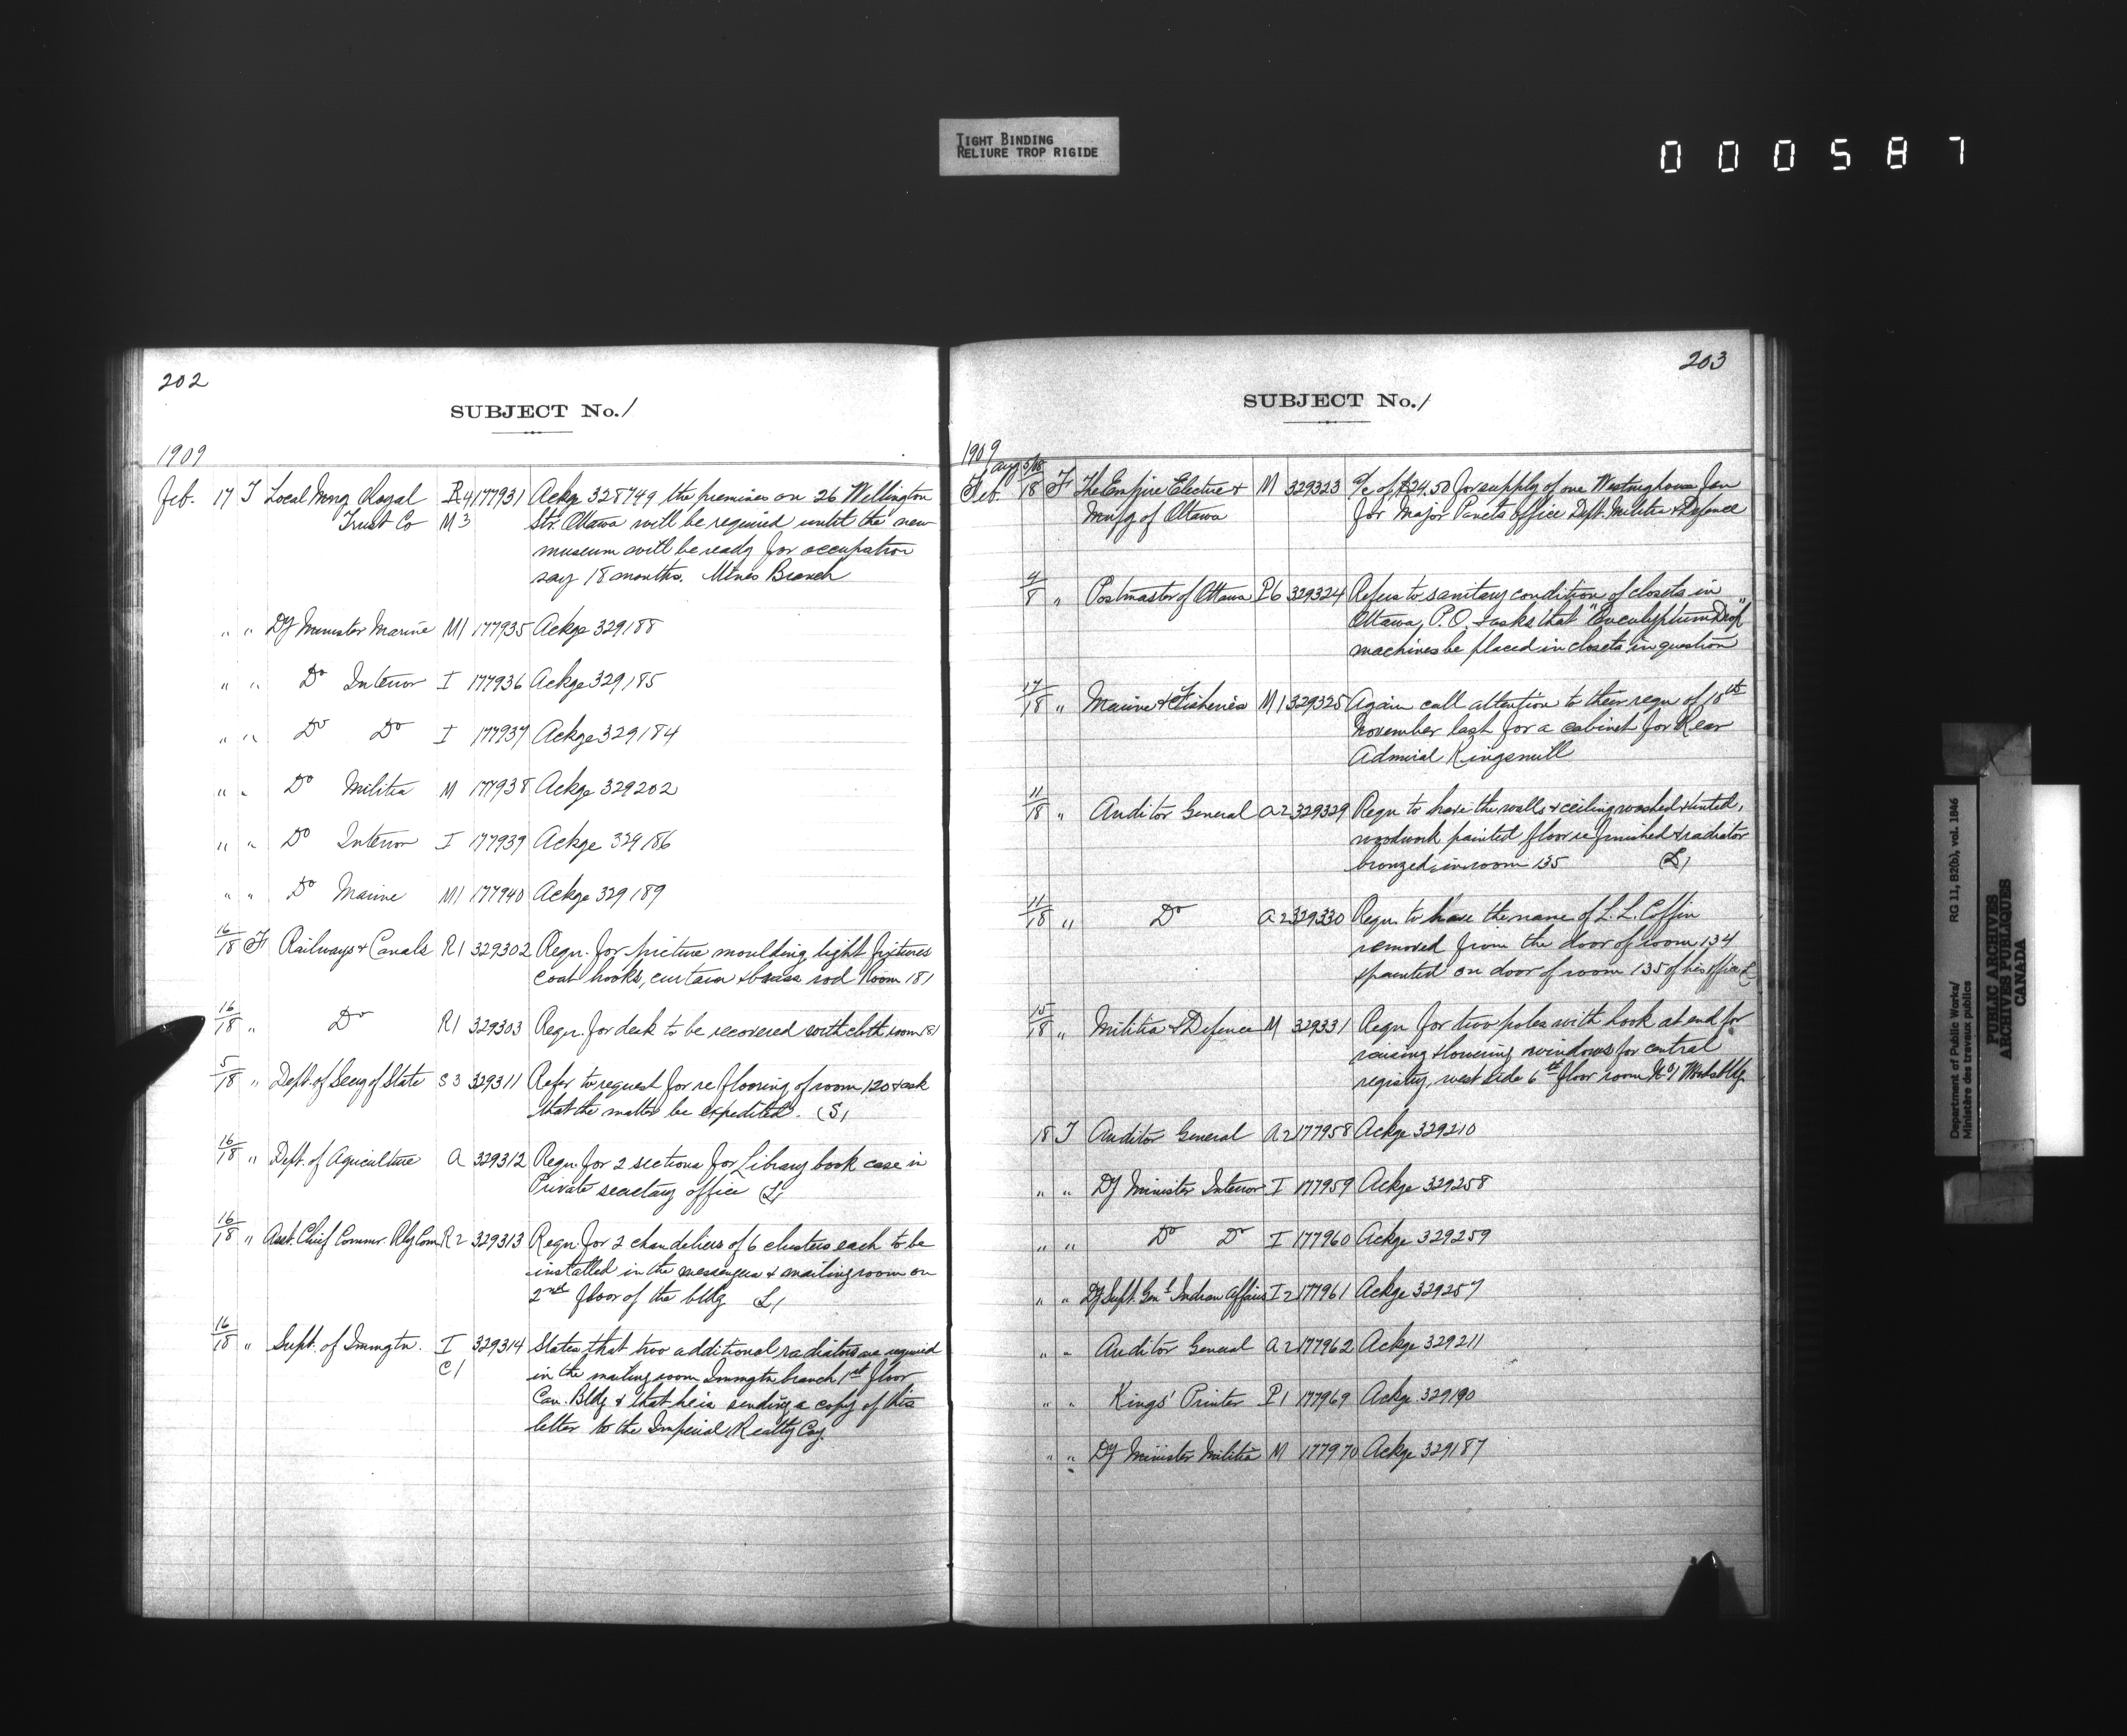 TIGHT BINDING
RELIURE TROP RIGIDE
000587
202
SUBJECT No. 1
1909
Feb. 17 T Local Mng Royal R4 177931 Ackge 328749 the premises on 26 Wellington
Trust Co M3 Str. Ottawa will be required until the new
museum will be ready for occupation
say 18 months. Mines Branch
" " Dy Minister Marine M1 177935 Ackge 329188
" " Do Interior I 177936 Ackge 329185
" " Do Do I 177937 Ackge 329184
" " Do Militia M 177938 Ackge 329202
" " Do Interior I 177939 Ackge 329186
" " Do Marine M1 177940 Ackge 329189
16/18 F Railways & Canals R1 329302 Requ. for picture moulding light fixtures
coat hooks, curtain & brass rod Room 181
16/18 " Do R1 329303 Requ. for desk to be recovered with cloth room 181
5/18 " Dept. of Secy of State S3 329311 Refer to request for reflooring of room 120 & ask
that the matter be expedited. (S1
16/18 " Dept. of Agriculture A 329312 Requ. for 2 sections for Library book case in
Private secretary office L1
16/18 " Asst. Chief Commr. Rly Com R2 329313 Requ. for 2 chandeliers of 6 clusters each to be
installed in the messengers & mailing room on
2nd floor of the bldg L1
16/18 " Supt. of Immgtn. I 329314 States that two additional radiators are required
C1 in the mailing room Immgtn branch 1st floor
Can. Bldg & that he is sending a copy of this
letter to the Imperial Realty Coy.
203
SUBJECT No. 1
1909
Aug 5/08
Feb. 18 F The Empire Electric & M 329323 a/c of $24.50 for supply of one Westinghouse Fan
Mnfg of Ottawa for Major Panets office Dept. Militia & Defence
9/8 " Postmaster of Ottawa P6 329324 Refers to sanitary condition of closets in
Ottawa, P.O. & asks that "Eucalyptum Drop"
machines be placed in closets in question
17/18 " Marine & Fisheries M1 329325 Again call attention to their requ of 18th
November last for a cabinet for Rear
Admiral Kingsmill
11/18 " Auditor General A2 329329 Requ to have the walls & ceiling washed & tinted,
woodwork painted floor refinished & radiator
bronzed in room 135 L1
11/18 " Do A2 329330 Requ. to have the name of L. L. Coffin
removed from the door of room 134
& painted on door of room 135 of his office L
15/18 " Militia & Defence M 329331 Requ for two poles with hook at end for
raising & lowering windows for central
registry, west side 6th floor room No 1 Woods bldg.
18 T Auditor General A2 177958 Ackge 329210
" " Dy Minister Interior I 177959 Ackge 329258
" " Do Do I 177960 Ackge 329259
" " Dy Supt. Genl Indian Affairs I2 177961 Ackge 329257
" " Auditor General A2 177962 Ackge 329211
" " Kings' Printer P1 177969 Ackge 329190
" " Dy Minister Militia M 177970 Ackge 329187
Department of Public Works/ RG 11, B2(b), vol. 1846
Ministère des travaux publics
PUBLIC ARCHIVES
ARCHIVES PUBLIQUES
CANADA